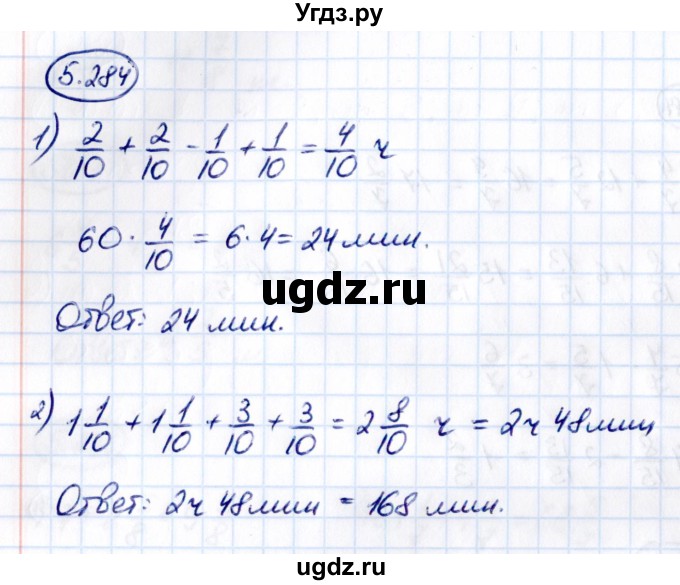 Угдз.ру
5.284
1) 2/10 + 2/10 - 1/10 + 1/10 = 4/10 ч
60 · 4/10 = 6·4 = 24 мин.
ugdz.ru
Ответ: 24 мин.
2) 1 1/10 + 1 1/10 + 3/10 + 3/10 = 2 8/10 ч = 2ч 48мин
Ответ: 2ч 48мин = 168 мин.
ugdz.ru